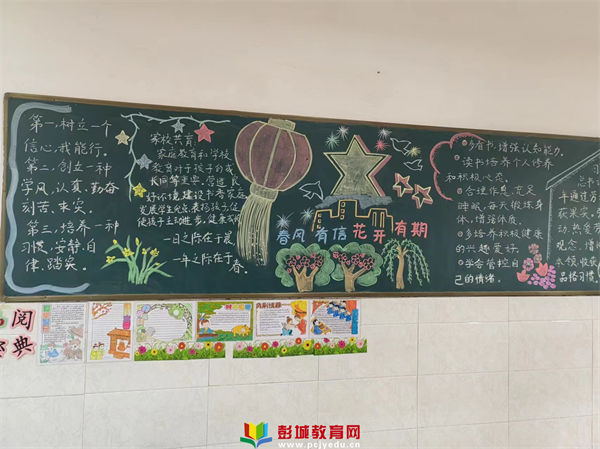 第一,树立一个
信心,我能行。
第二,创立一种
学风,认真,勤奋
刻苦,求实。
第三,培养一种
习惯,安静,自
律,踏实。
家校共育,
家庭教育和学校
教育对于孩子的成
长同等重要,营造良
好环境,建设书香家庭
发展学生
使孩子主动进步,健康成
一日之际在于晨
一年之际在于春。
春风有信花开有期
多看书,增强认知能力。
读书培养个人修养
和积极心态。
合理作息,充足
睡眠,每天锻炼身
体,增强体质。
多培养积极健康
的兴趣爱好。
学会管控自
己的情绪。
习
总书
年通过劳
获果实,劳
动,热爱劳
观念,增
本领,收获
品格习惯,
阅
经典
彭城教育网
www.pcjyedu.cn